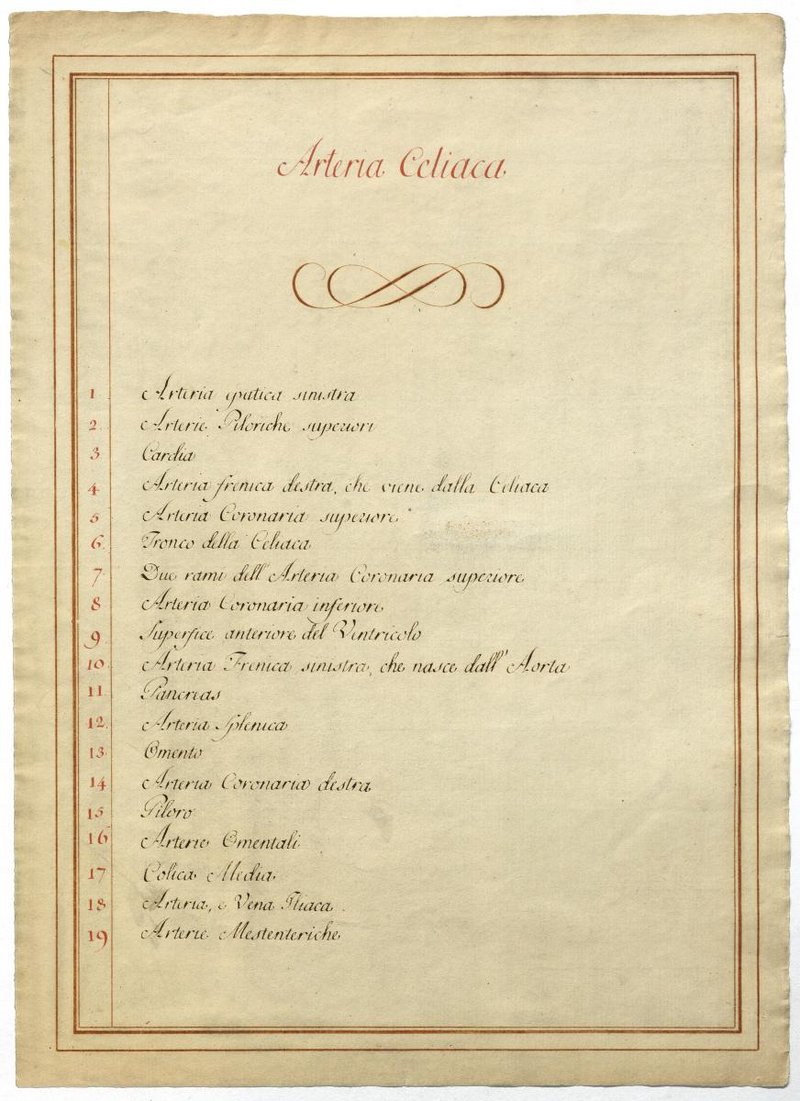 Arteria Celiaca
1 Arteria epatica sinistra
2. Arterie Piloriche superiori
3 Cardia
4 Arteria frenica destra, che viene dalla Celiaca
5 Arteria Coronaria superiore
6. Tronco della Celiaca
7 Due rami dell'Arteria Coronaria superiore
8 Arteria Coronaria inferiore
9 Superfice anteriore del Ventricolo
10. Arteria Frenica sinistra, che nasce dall'Aorta
11 Pancreas
12. Arteria Splenica
13 Omento
14 Arteria Coronaria destra
15 Piloro
16 Arterie Omentali
17 Colica Media
18 Arteria, e Vena Iliaca.
19 Arterie Mestenteriche